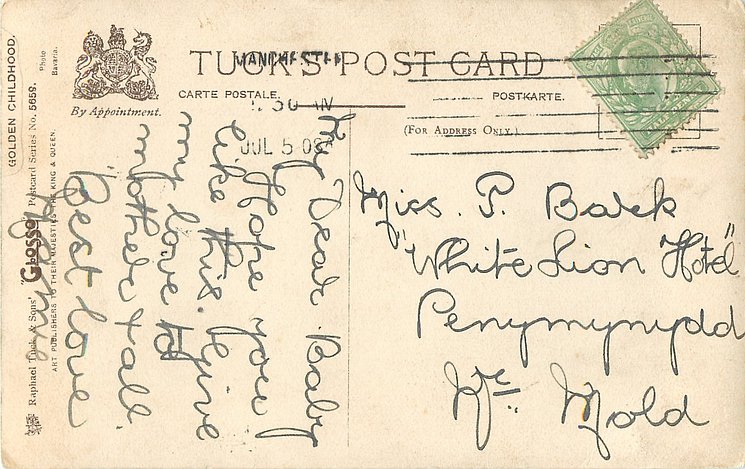 GOLDEN CHILDHOOD.
Photo
Bavaria.
Raphael Tuck & Sons' "GLOSSO" Postcard Series No. 5659.
ART PUBLISHERS TO THEIR MAJESTIES THE KING & QUEEN.
By Appointment.
TUCK'S POST CARD
CARTE POSTALE.
POSTKARTE.
(FOR ADDRESS ONLY.)
MANCHESTER
JUL 5 08
My Dear Baby
Hope you
like this. Give
my love to
mother & all
Best love
Miss. P. Bark
"White Lion Hotel"
Penymynydd
Nr. Mold